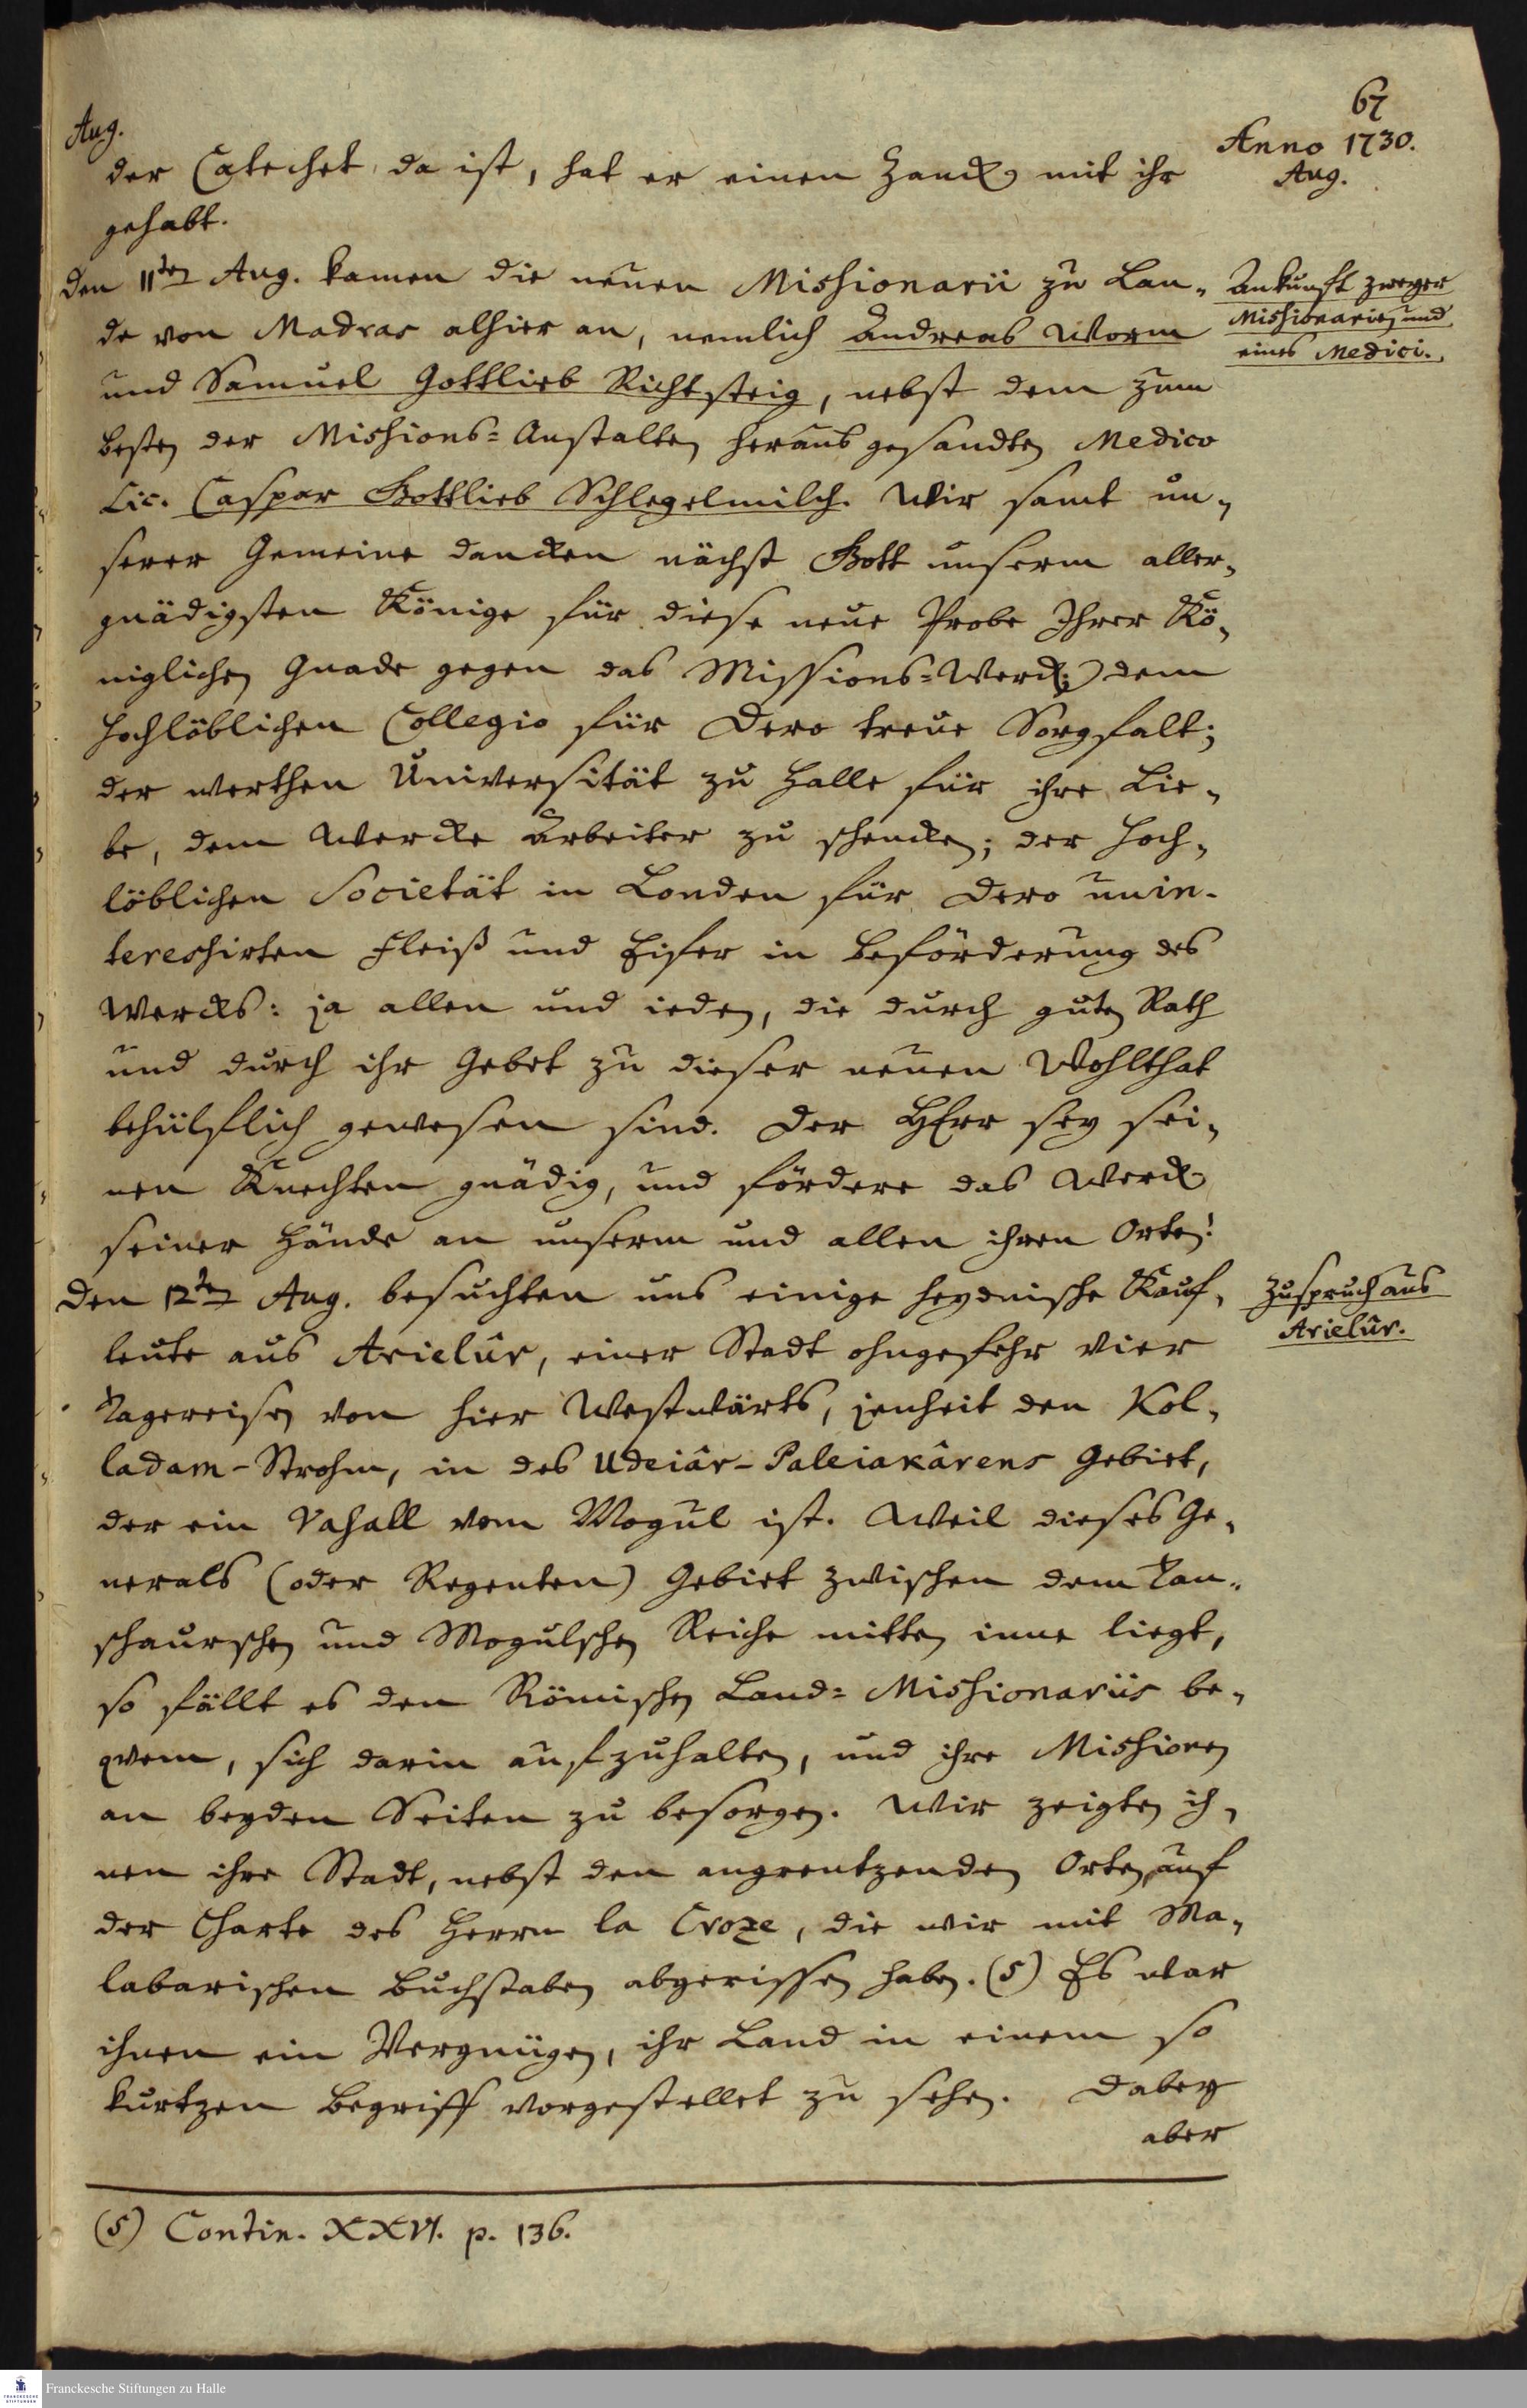 67
Aug.
Anno 1730.
Aug.
der Catechet da ist, hat er einen Zanck mit ihr
gehabt.
den 11ten Aug. kamen die neuen Missionarii zu Lan-
de von Madras alhier an, nemlich Andreas Worm
und Samuel Gottlieb Richtsteig, nebst dem zum
besten der Missions-Anstalten heraus gesandten Medico
Lic. Caspar Gottlieb Schlegelmilch. Wir samt un-
serer Gemeine dancken nächst Gott unserm aller-
gnädigsten Könige für diese neue Probe Ihrer Kö-
niglichen Gnade gegen das Missions-Werck; dem
Hochlöblichen Collegio für Dero treue Sorgfalt;
der werthen Universität zu Halle für ihre Lie-
be, dem Wercke Arbeiter zu schencken; der Hoch-
löblichen Societät in Londen für Dero unin-
teressirten Fleiß und Eifer in Beförderung des
Wercks: ja allen und ieden, die durch guten Rath
und durch ihr Gebet zu dieser neuen Wohlthat
behülflich gewesen sind. Der HErr sey sei-
nen Knechten gnädig, und fördere das Werck
seiner Hände an unserm und allen ihren Orten!
den 12ten Aug. besuchten uns einige heydnische Kauf-
leute aus Arielûr, einer Stadt ohngefehr vier
Tagereisen von hier Westwärts, jenheit den Kol-
ladam-Strohm, in des Udeiâr-Paleiakârens Gebiet,
der ein Vasall vom Mogul ist. Weil dieses Ge-
nerals (oder Regenten) Gebiet zwischen dem Tan-
schaurschen und Mogulschen Reiche mitten inne liegt,
so fällt es den Römischen Land-Missionariis be-
qvem, sich darin aufzuhalten, und ihre Missionen
an beyden Seiten zu besorgen. Wir zeigten ih-
nen ihre Stadt, nebst den angrentzenden Orten, auf
der Charte des Herrn la Croze, die wir mit Ma-
labarischen Buchstaben abgerissen haben. (5) Es war
ihnen ein Vergnügen, ihr Land in einem so
kurtzen Begriff vorgestellet zu sehen. Dabey
aber
Ankunft zweyer
Missionarien und
eines Medici.
Zuspruch aus
Arielûr.
(5) Contin. XXVI. p. 136.
FRANCKESCHE STIFTUNGEN
Franckesche Stiftungen zu Halle